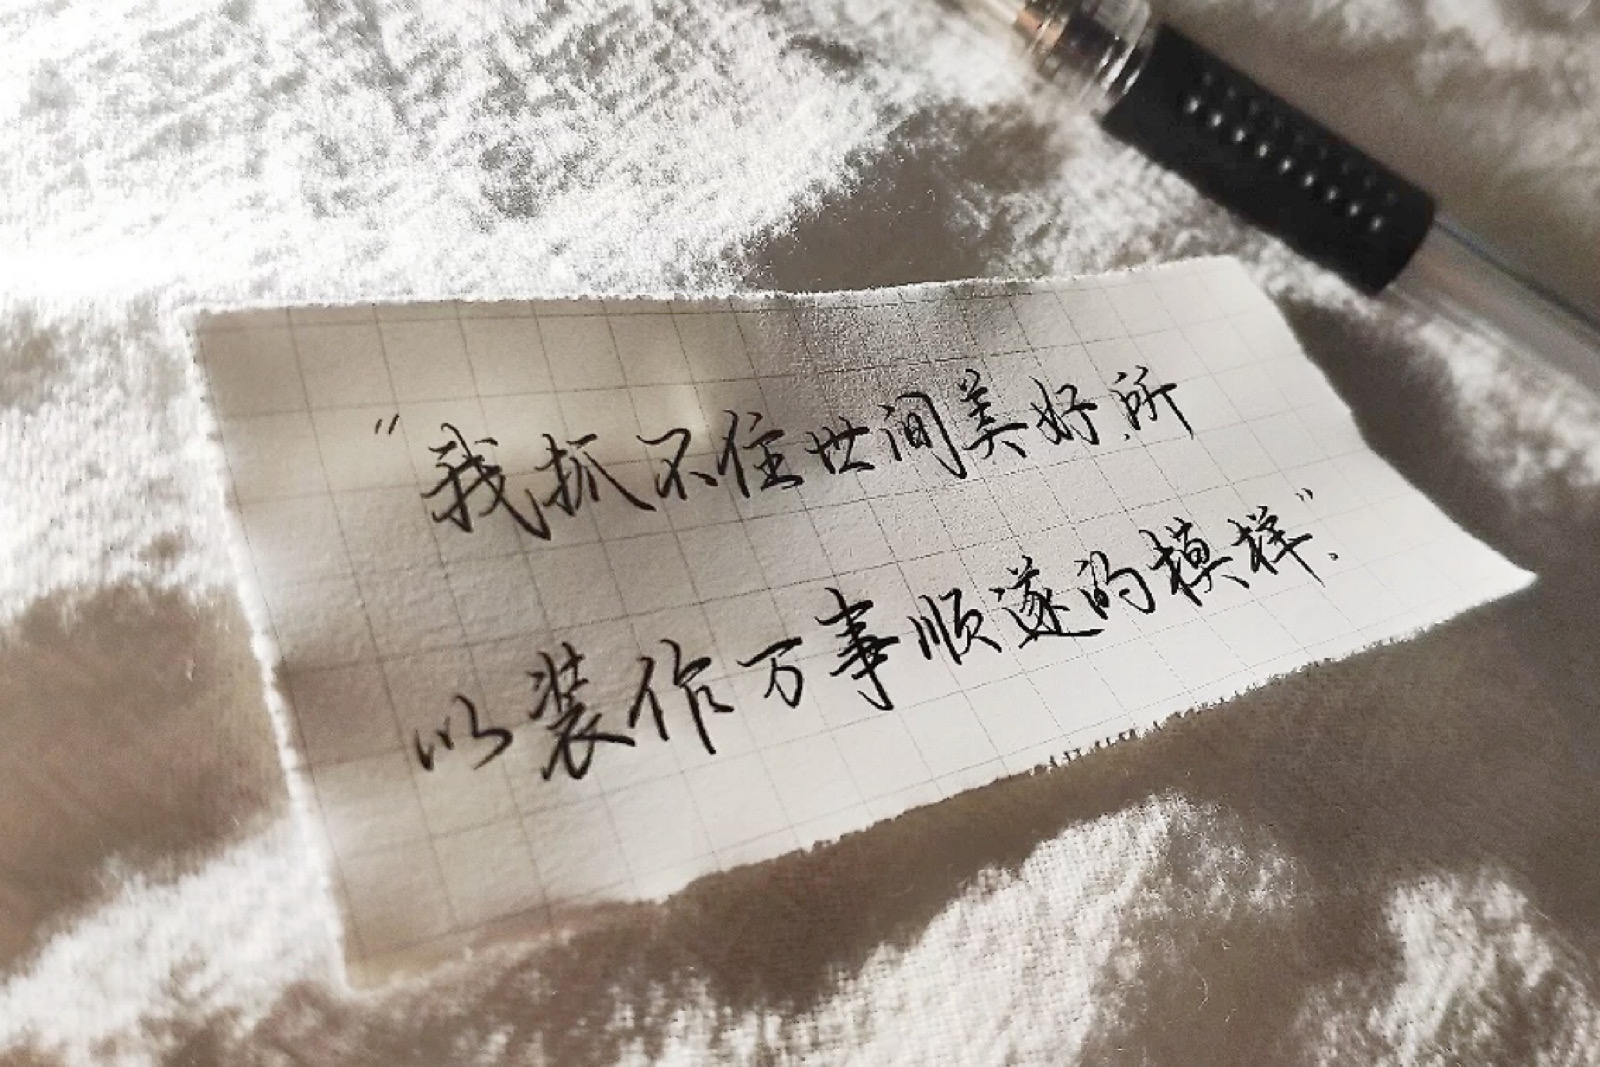 “我抓不住世间美好.所
以装作万事顺遂的模样”.